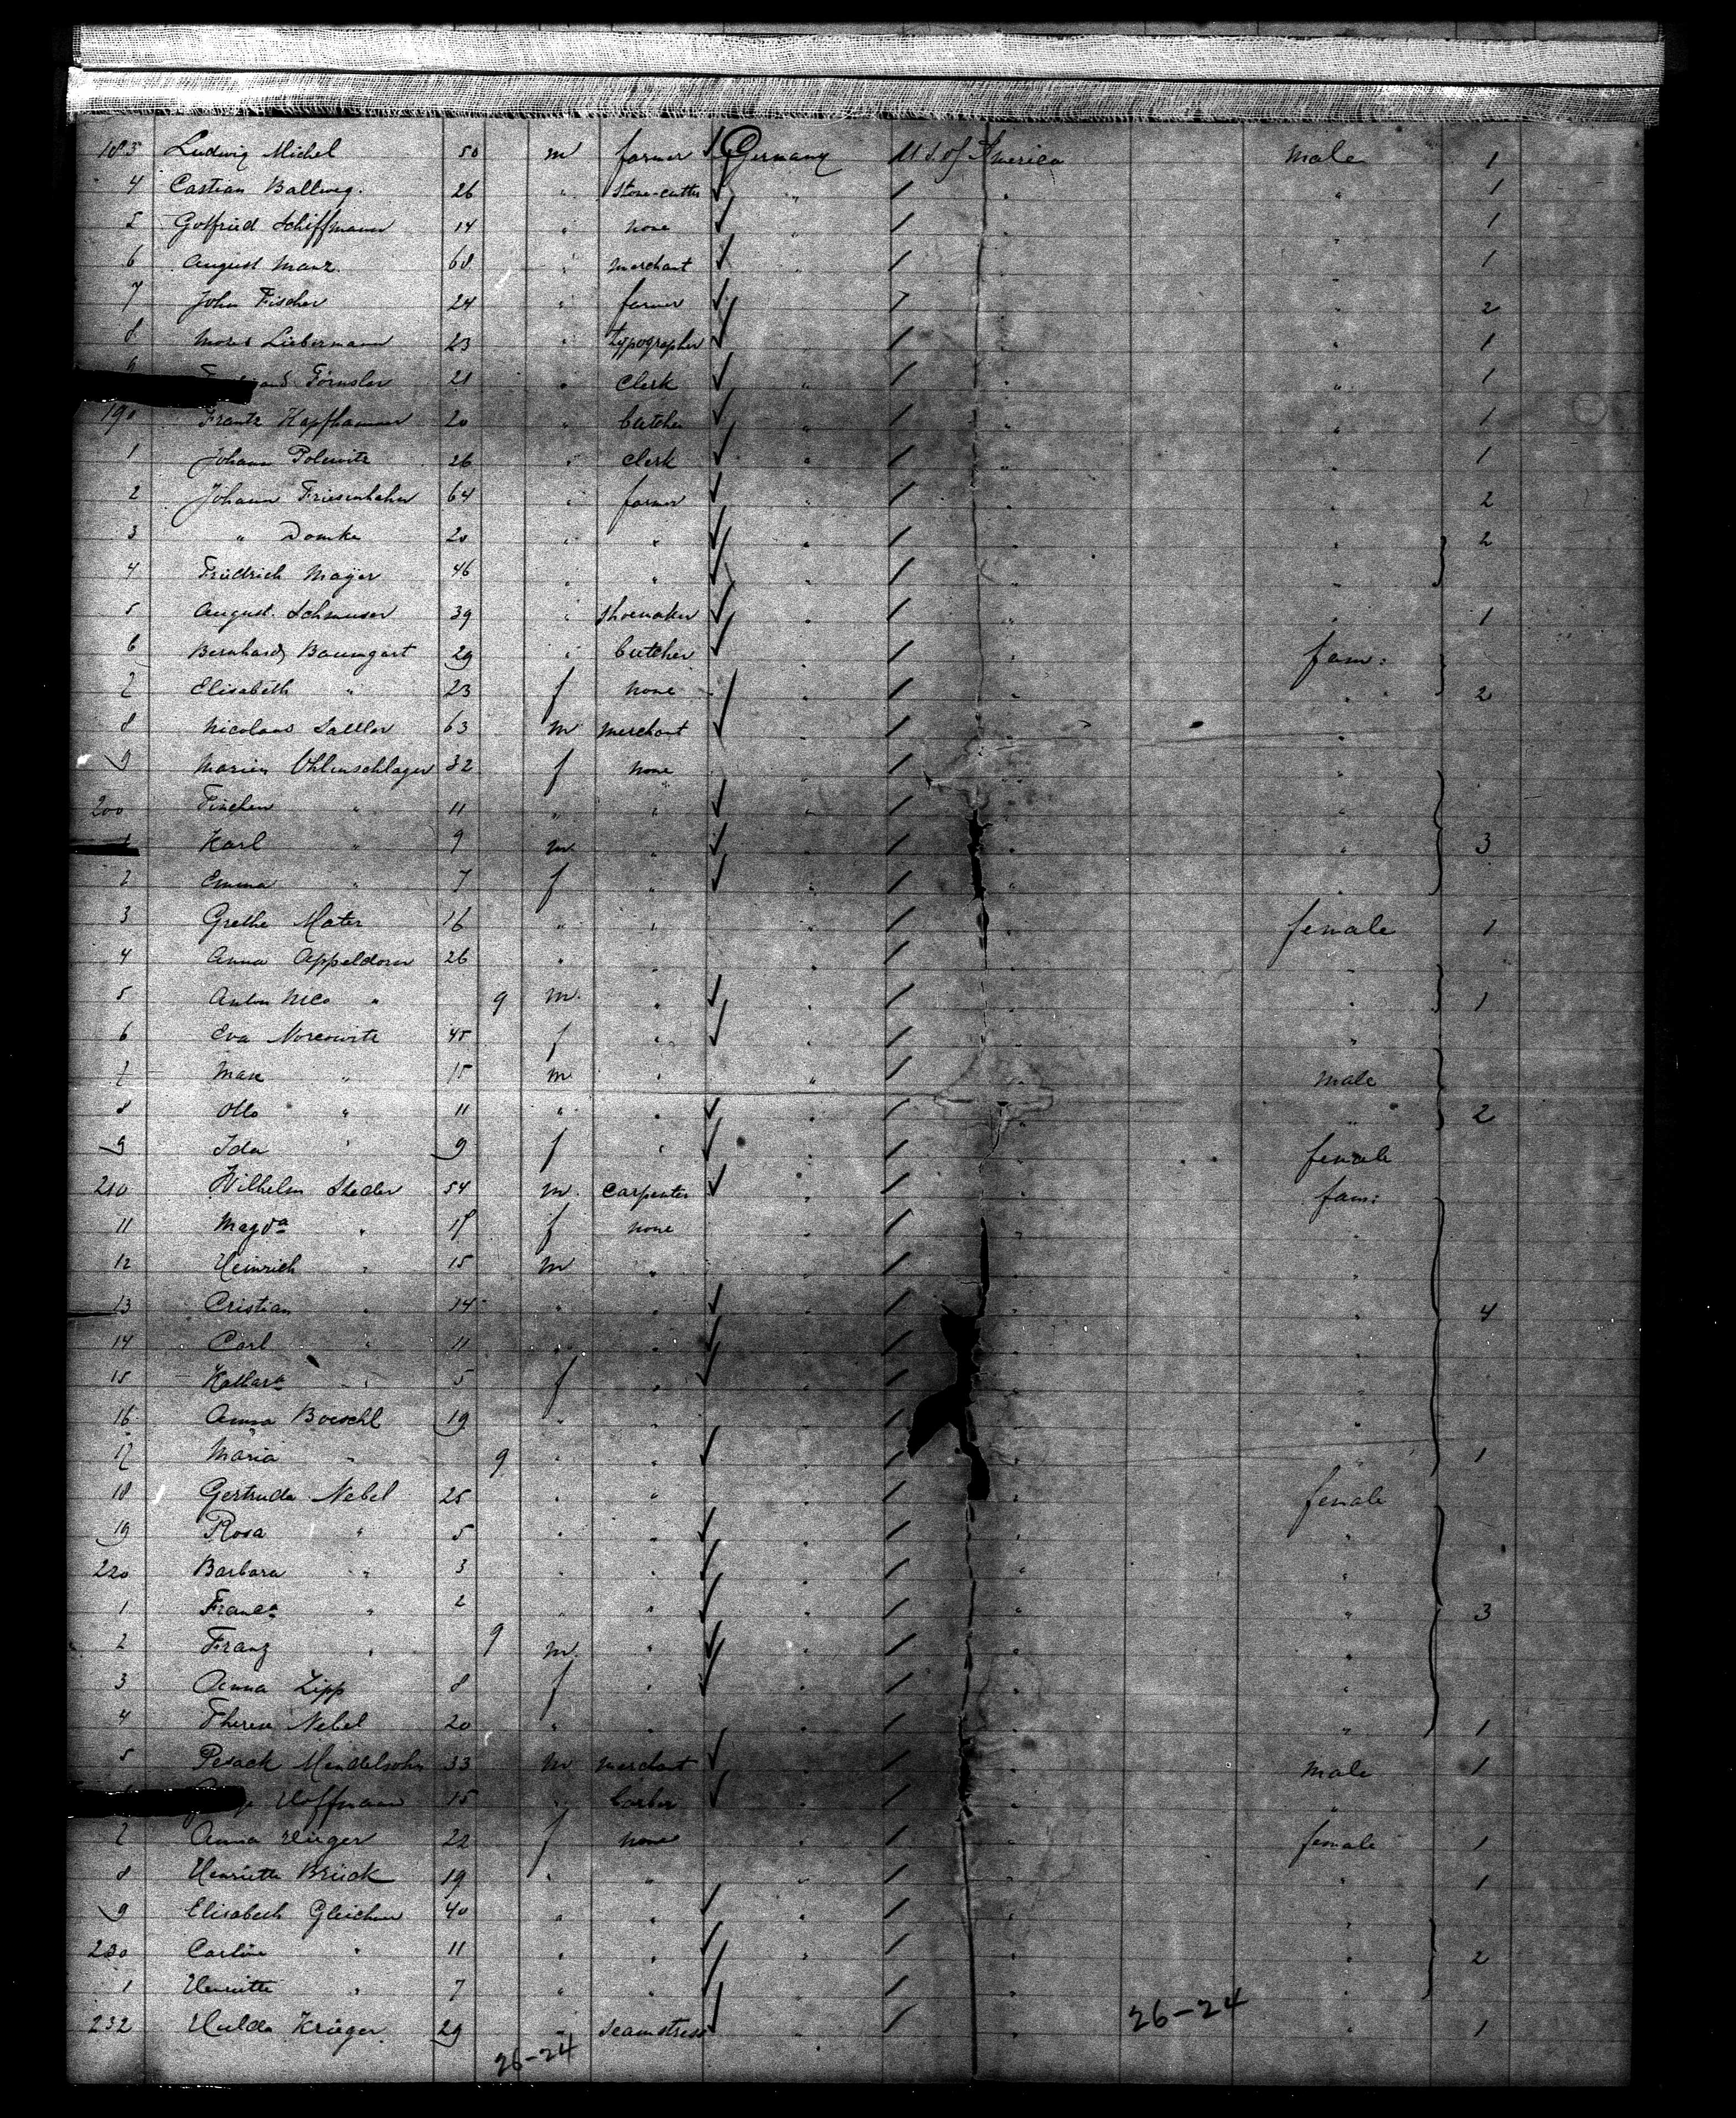 183 Ludwig Michel 50 m farmer Germany U.S. of America male 1
4 Castian Ballweg. 26 " stone-cutter " / " " 1
5 Gotfried Schiffmann 14 " none " / " 1
6 August Manz 68 " merchant " / " 1
7 John Fischer 24 " farmer / " 2
8 Liebermann 23 " typographer / " 1
9 Förnsler 21 " Clerk " / " " 1
190 Frantz Kapfhammer 20 " butcher " / " " 1
1 Johann 26 " Clerk " / " " 1
2 Johann 64 " farmer " / " " 2
3 " Domke 20 " " " / " " 2
4 Friedrich Mayer 46 " " " / " "
5 August. 39 " shoemaker " / " " 1
6 Bernhard Baumgart 29 " butcher / " fam:
7 Elisabeth " 23 f none " / " " 2
8 Nicolaus Sattler 63 m merchant " / " "
9 Marien Ohlenschlager 32 f none " / " "
200 " 11 " " " / " "
1 Karl " 9 m " " / " " 3
2 Emma " 7 f " " / " "
3 Grethe Mater 16 " " " / " female 1
4 Anna Appeldorn 26 " " " / " "
5 Anton " 9 m. " " / " " 1
6 Eva 45 f " " / " "
7 Max " 15 m " " / " male
8 Otto " 11 " " " / " " 2
9 Ida " 9 f " " / " female
210 Wilhelm Steder 54 m. Carpenter " / " fam:
11 Magda " 18 f none " / " "
12 Heinrich " 15 m " " / " "
13 Cristian " 14 " " " / " " 4
14 Carl " 11 " " " / "
15 " 5 f " " / "
16 Anna Boeschl 19 " " / "
17 Maria " 9 " " " / " " 1
18 Gertruda Nebel 25 " " " / female
19 Rosa " 5 " " " / " "
220 Barbara " 3 " " " / " "
1 Franca " 2 " " " / " " 3
2 Franz " 9 m. " " / " "
3 Anna Zipp 8 f " " / " "
4 Therese Nebel 20 " " " / " " 1
5 Pesack Mendelsohn 33 m merchant " / " male 1
Hoffmann 15 " barber " / " "
7 Anna 22 f none " / " female 1
8 Henriette Brück 19 " " " / " " 1
9 Elisabeth Gleichner 40 " " " / " "
230 Carline " 11 " " " / " " 2
1 Henriette " 7 " " " / " "
232 Hulda Krüger. 29 " seamstress " / " " 1
26-24
26-24